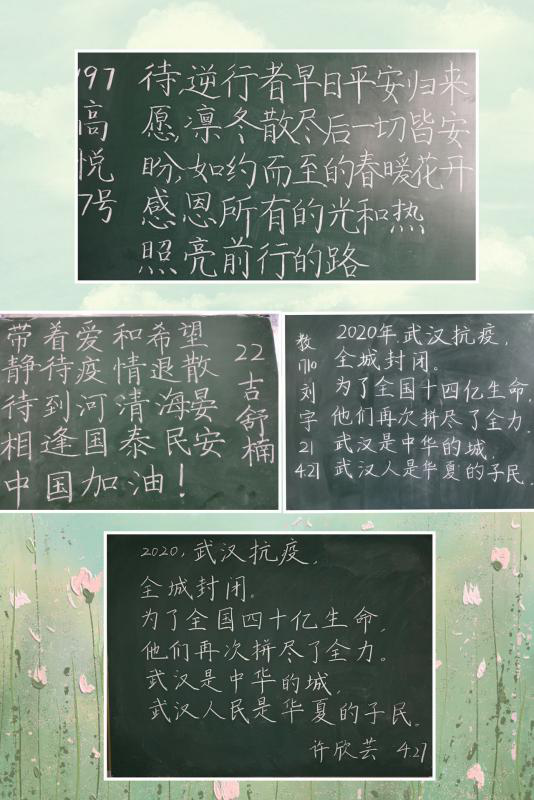 197
高
悦
7号
待,逆行者早日平安归来
愿,凛冬散尽后一切皆安
盼,如约而至的春暖花开
感恩所有的光和热
照亮前行的路
带着爱和希望
静待疫情退散
待到河清海晏
相逢国泰民安
中国加油!
22
吉
舒
楠
教
1710
刘
字
21
4.21
2020年武汉抗疫,
全城封闭。
为了全国十四亿生命,
他们再次拼尽了全力.
武汉是中华的城,
武汉人是华夏的子民.
2020,武汉抗疫,
全城封闭。
为了全国四十亿生命,
他们再次拼尽了全力。
武汉是中华的城,
武汉人民是华夏的子民。
许欣芸 4.21